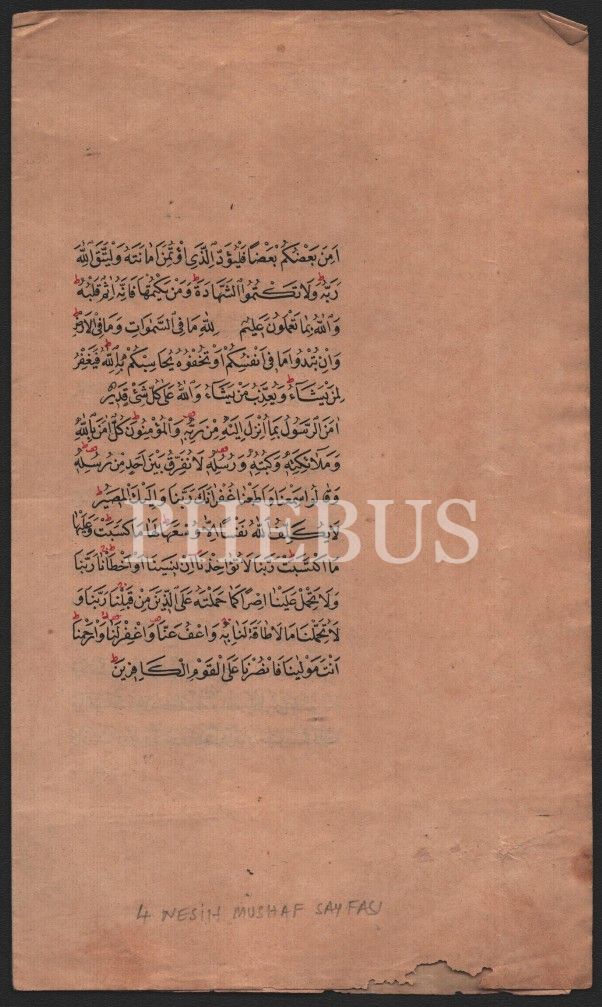 اَمِنَ بَعْضُكُمْ بَعْضًا فَلْيُؤَدِّ الَّذِي اؤْتُمِنَ اَمَانَتَهُ وَلْيَتَّقِ اللّٰهَ
رَبَّهُ وَلَا تَكْتُمُوا الشَّهَادَةَ وَمَنْ يَكْتُمْهَا فَاِنَّهُ اٰثِمٌ قَلْبُهُ
وَاللّٰهُ بِمَا تَعْمَلُونَ عَلِيمٌ لِلّٰهِ مَا فِي السَّمٰوَاتِ وَمَا فِي الْاَرْضِ
وَاِنْ تُبْدُوا مَا فِي اَنْفُسِكُمْ اَوْ تُخْفُوهُ يُحَاسِبْكُمْ بِهِ اللّٰهُ فَيَغْفِرُ
لِمَنْ يَشَاءُ وَيُعَذِّبُ مَنْ يَشَاءُ وَاللّٰهُ عَلٰى كُلِّ شَيْءٍ قَدِيرٌ
اٰمَنَ الرَّسُولُ بِمَا اُنْزِلَ اِلَيْهِ مِنْ رَبِّهِ وَالْمُؤْمِنُونَ كُلٌّ اٰمَنَ بِاللّٰهِ
وَمَلٰئِكَتِهِ وَكُتُبِهِ وَرُسُلِهِ لَا نُفَرِّقُ بَيْنَ اَحَدٍ مِنْ رُسُلِهِ
وَقَالُوا سَمِعْنَا وَاَطَعْنَا غُفْرَانَكَ رَبَّنَا وَاِلَيْكَ الْمَصِيرُ
لَا يُكَلِّفُ اللّٰهُ نَفْسًا اِلَّا وُسْعَهَا لَهَا مَا كَسَبَتْ وَعَلَيْهَا
مَا اكْتَسَبَتْ رَبَّنَا لَا تُؤَاخِذْنَا اِنْ نَسِينَا اَوْ اَخْطَأْنَا رَبَّنَا
وَلَا تَحْمِلْ عَلَيْنَا اِصْرًا كَمَا حَمَلْتَهُ عَلَى الَّذِينَ مِنْ قَبْلِنَا رَبَّنَا وَ
لَا تُحَمِّلْنَا مَا لَا طَاقَةَ لَنَا بِهِ وَاعْفُ عَنَّا وَاغْفِرْ لَنَا وَارْحَمْنَا
اَنْتَ مَوْلٰينَا فَانْصُرْنَا عَلَى الْقَوْمِ الْكَافِرِينَ
PHEBUS
4 NESİH MUSHAF SAYFASI